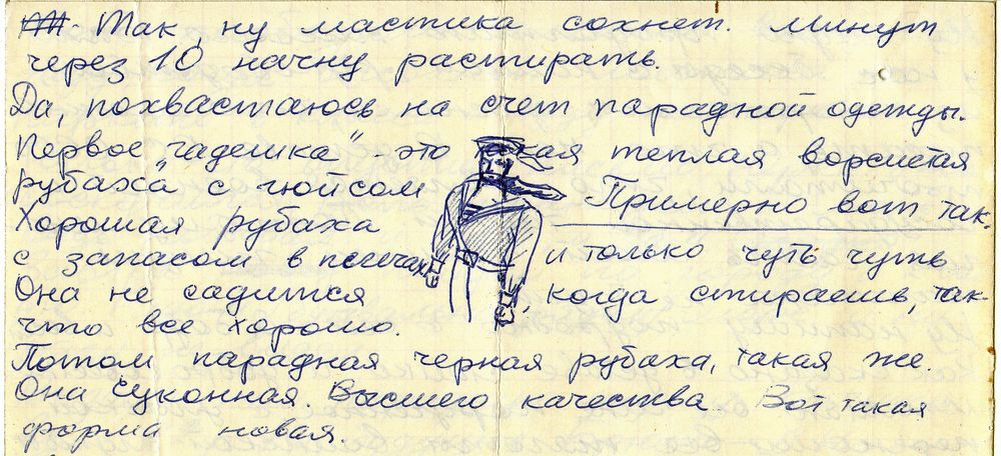 Так, ну мастика сохнет. Минут
через 10 начну растирать.
Да, похвастаюсь на счет парадной одежды.
Первое „гадешка" - это такая теплая ворсистая
рубаха с гюйсом Примерно вот так.
Хорошая рубаха
с запасом в плечах и только чуть чуть
Она не садится, когда стираешь, так-
что все хорошо.
Потом парадная черная рубаха, такая же.
Она суконная. Высшего качества Вот такая
форма новая.